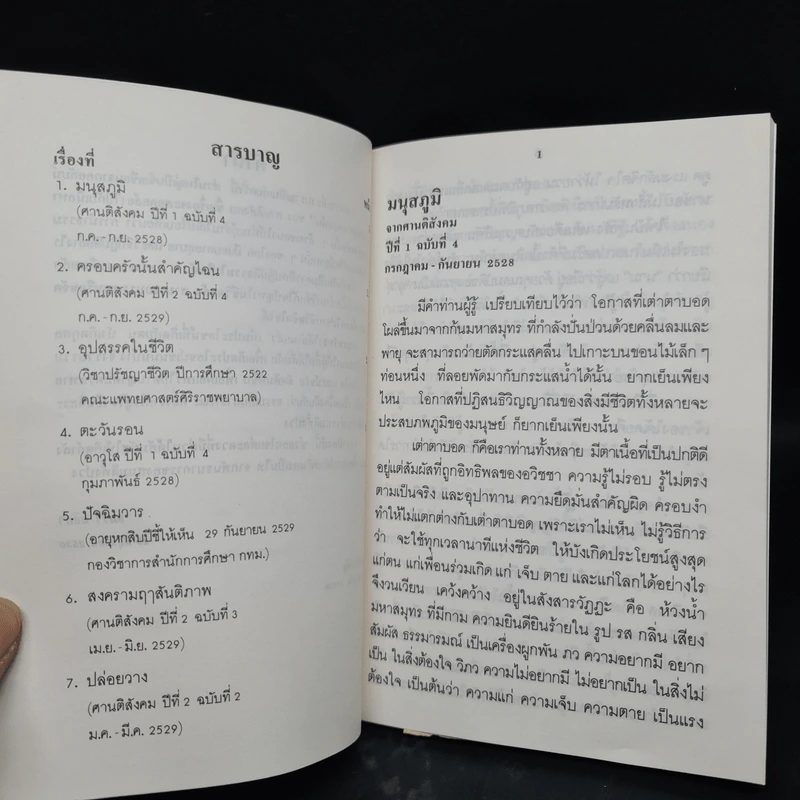 สารบาญ
เรื่องที่
1. มนุสภูมิ
(ศานติสังคม ปีที่ 1 ฉบับที่ 4
ก.ค.-ก.ย. 2528)
2. ครอบครัวนั้นสำคัญไฉน
(ศานติสังคม ปีที่ 2 ฉบับที่ 4
ก.ค.-ก.ย. 2529)
3. อุปสรรคในชีวิต
(วิชาปรัชญาชีวิต ปีการศึกษา 2522
คณะแพทยศาสตร์ศิริราชพยาบาล)
4. ตะวันรอน
(อาวุโส ปีที่ 1 ฉบับที่ 4
กุมภาพันธ์ 2528)
5. ปัจฉิมวาร
(อายุหกสิบปีชี้ให้เห็น 29 กันยายน 2529
กองวิชาการสำนักการศึกษา กทม.)
6. สงครามฤๅสันติภาพ
(ศานติสังคม ปีที่ 2 ฉบับที่ 3
เม.ย.-มิ.ย. 2529)
7. ปล่อยวาง
(ศานติสังคม ปีที่ 2 ฉบับที่ 2
ม.ค.-มี.ค. 2529)
1
มนุสภูมิ
จากศานติสังคม
ปีที่ 1 ฉบับที่ 4
กรกฎาคม-กันยายน 2528
มีคำท่านผู้รู้ เปรียบเทียบไว้ว่า โอกาสที่เต่าตาบอด
โผล่ขึ้นมาจากก้นมหาสมุทร ที่กำลังปั่นป่วนด้วยคลื่นลมและ
พายุ จะสามารถว่ายตัดกระแสคลื่น ไปเกาะบนขอนไม้เล็ก ๆ
ท่อนหนึ่ง ที่ลอยพัดมากับกระแสน้ำได้นั้น ยากเย็นเพียง
ไหน โอกาสที่ปฏิสนธิวิญญาณของสิ่งมีชีวิตทั้งหลายจะ
ประสบภพภูมิของมนุษย์ ก็ยากเย็นเพียงนั้น
เต่าตาบอด ก็คือเราท่านทั้งหลาย มีตาเนื้อที่เป็นปกติดี
อยู่แต่สัมผัสที่ถูกอิทธิพลของอวิชชา ความรู้ไม่รอบ รู้ไม่ตรง
ตามเป็นจริง และอุปาทาน ความยึดมั่นสำคัญผิด ครอบงำ
ทำให้ไม่แตกต่างกับเต่าตาบอด เพราะเราไม่เห็น ไม่รู้วิธีการ
ว่า จะใช้ทุกเวลานาทีแห่งชีวิต ให้บังเกิดประโยชน์สูงสุด
แก่ตน แก่เพื่อนร่วมเกิด แก่ เจ็บ ตาย และแก่โลกได้อย่างไร
จึงวนเวียน เคว้งคว้าง อยู่ในสังสารวัฏฏะ คือ ห้วงน้ำ
มหาสมุทร ที่มีกาม ความยินดียินร้ายใน รูป รส กลิ่น เสียง
สัมผัส ธรรมารมณ์ เป็นเครื่องผูกพัน ภว ความอยากมี อยาก
เป็น ในสิ่งต้องใจ วิภว ความไม่อยากมี ไม่อยากเป็น ในสิ่งไม่
ต้องใจ เป็นต้นว่า ความแก่ ความเจ็บ ความตาย เป็นแรง